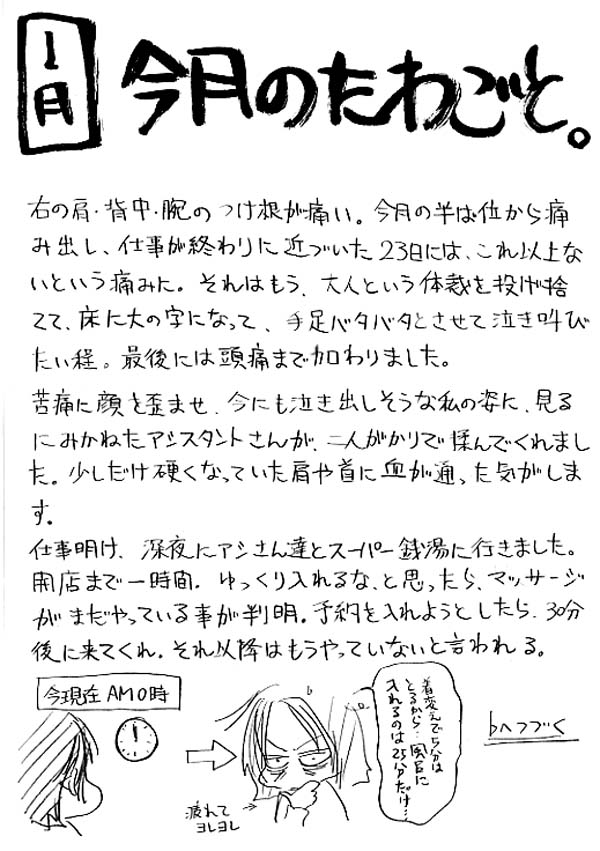 1月
今月のたわごと。
右の肩・背中・腕のつけ根が痛い。今月の半ば位から痛
み出し、仕事が終わりに近づいた23日には、これ以上な
いという痛みに。それはもう、大人という体裁を投げ捨
てて、床に大の字になって、手足バタバタとさせて泣き叫び
たい程。最後には頭痛まで加わりました。
苦痛に顔を歪ませ、今にも泣き出しそうな私の姿に、見る
にみかねたアシスタントさんが、二人がかりで揉んでくれまし
た。少しだけ硬くなっていた肩や首に血が通った気がしま
す。
仕事明け、深夜にアシさん達とスーパー銭湯に行きました。
閉店まで一時間。ゆっくり入れるな、と思ったら、マッサージ
がまだやっている事が判明。予約を入れようとしたら、30分
後に来てくれ。それ以降はもうやっていないと言われる。
今現在AM0時
着変えで5分は
とるから…風呂に
入れるのは25分だけ…
疲れて
ヨレヨレ
bへつづく